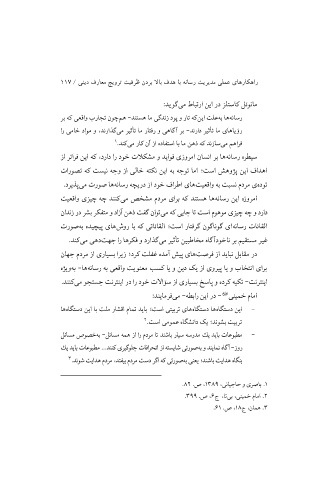 راهکارهای عملی مدیریت رسانه با هدف بالا بردن ظرفیت ترویج معارف دینی / ۱۱۷
مانوئل کاستلز در این ارتباط می‌گوید:
رسانه‌ها به‌علت این‌که تار و پود زندگی ما هستند- هم‌چون تجارب واقعی که بر
رؤیاهای ما تأثیر دارند- بر آگاهی و رفتار ما تأثیر می‌گذارند، و مواد خامی را
فراهم می‌سازند که ذهن ما با استفاده از آن کار می‌کند.۱
سیطره رسانه‌ها بر انسان امروزی فواید و مشکلات خود را دارد، که این فراتر از
اهداف این پژوهش است؛ اما توجه به این نکته خالی از وجه نیست که تصورات
توده‌ی مردم نسبت به واقعیت‌های اطراف خود از دریچه رسانه‌ها صورت می‌پذیرد.
امروزه این رسانه‌ها هستند که برای مردم مشخص می‌کنند چه چیزی واقعیت
دارد و چه چیزی موهوم است تا جایی که می‌توان گفت ذهن آزاد و متفکر بشر در زندان
القائات رسانه‌ای گوناگون گرفتار است؛ القائاتی که با روش‌های پیچیده به‌صورت
غیر مستقیم بر ناخودآگاه مخاطبین تأثیر می‌گذارد و فکرها را جهت‌دهی می‌کند.
در مقابل نباید از فرصت‌های پیش آمده غفلت کرد؛ زیرا بسیاری از مردم جهان
برای انتخاب و یا پیروی از یک دین و یا کسب معنویت واقعی به رسانه‌ها- به‌ویژه
اینترنت- تکیه کرده و پاسخ بسیاری از سؤالات خود را در اینترنت جستجو می‌کنند.
امام خمینی- در این رابطه- می‌فرمایند:
- این دستگاه‌ها دستگاه‌های تربیتی است؛ باید تمام اقشار ملت با این دستگاه‌ها
تربیت بشوند؛ یک دانشگاه عمومی است.۲
- مطبوعات باید یك مدرسه سیار باشند تا مردم را از همه مسائل- به‌خصوص مسائل
روز- آگاه نمایند و به‌صورتی شایسته از انحرافات جلوگیری کنند... مطبوعات باید یك
بنگاه هدایت باشند؛ یعنی به‌صورتی که اگر دست مردم بیفتد، مردم هدایت شوند.۳
۱. باصری و حاجیانی، ۱۳۸۹، ص. ۸۲.
۲. امام خمینی، بی‌تا، ج۶، ص. ۳۹۹.
۳. همان، ج۱۸، ص. ۶۱.